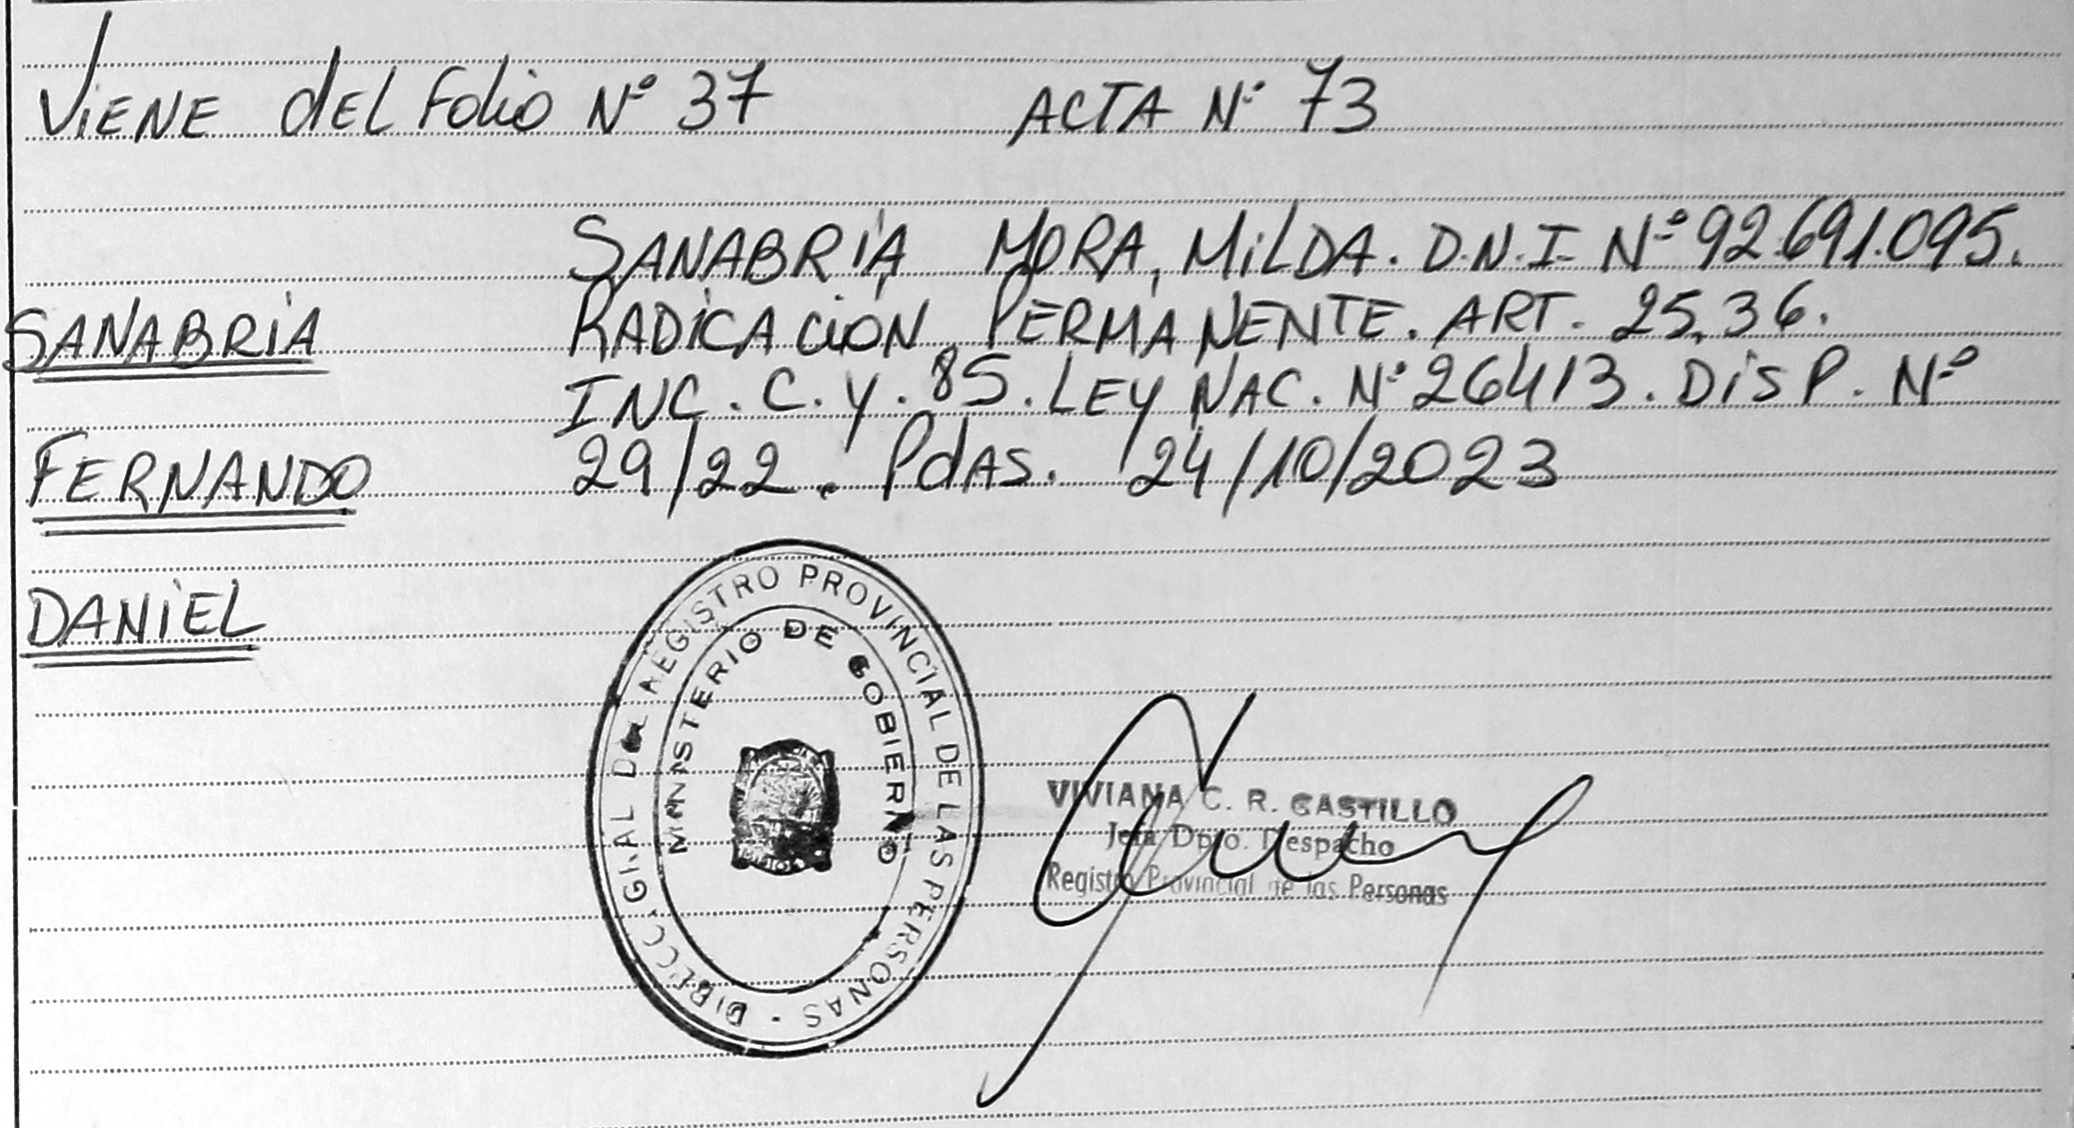 ViENE dEL Folio Nº 37 ACTA Nº 73
SANABRIA MORA, MiLDA. D.N.I. Nº 92.691.095.
SANABRIA
RADICACIÓN PERMANENTE. ART. 25, 36.
INC. C. Y. 85. LEY NAC. Nº 26413. DISP. Nº
FERNANDO
29/22. PdAS. 24/10/2023
DANIEL
DIRECC. GRAL DEL REGISTRO PROVINCIAL DE LAS PERSONAS -
MINISTERIO DE GOBIERNO
VIVIANA C. R. CASTILLO
Jefa Dpto. Despacho
Registro Provincial de las Personas